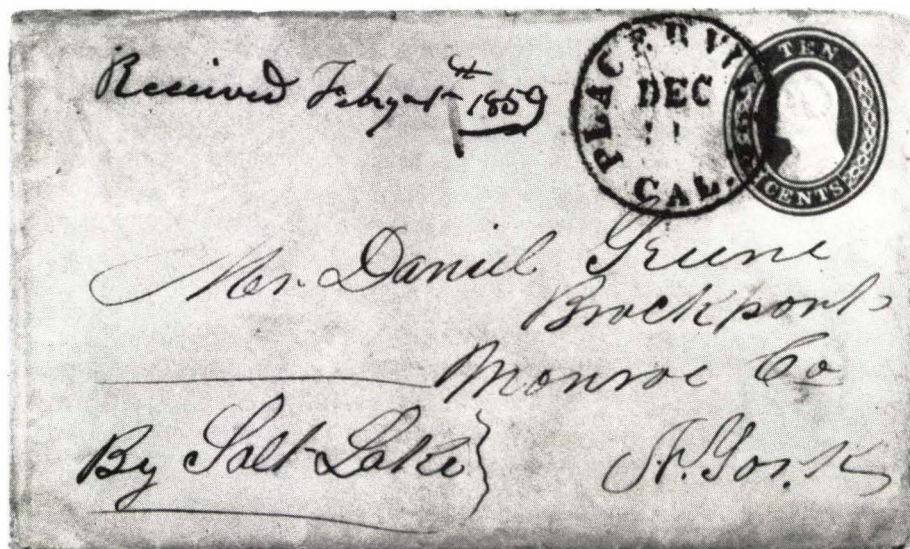 Received Feby 1st 1859
PLACERVI
DEC
11
CAL.
TEN
CENTS
Mr. Daniel Greene
Brockport
Monroe Co
By Salt Lake
N. York